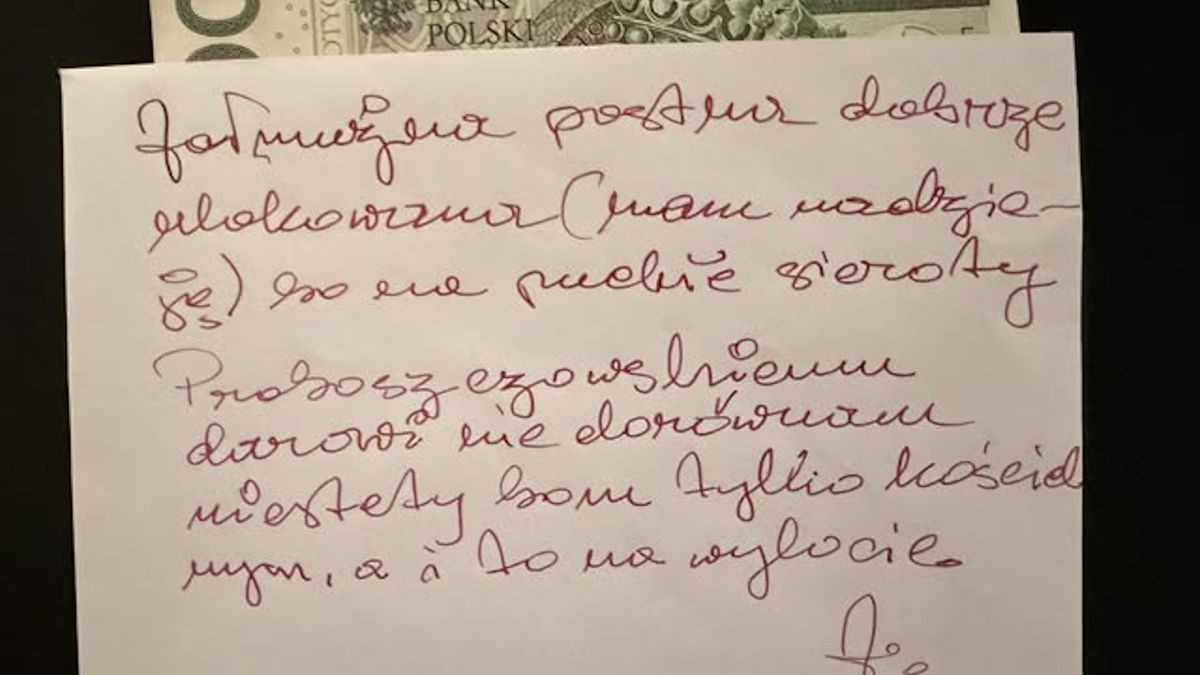 BANK
POLSKI
Jałmużna postna dobrze
ulokowana (mam nadzie-
ję) bo na puckie sieroty
Proboszczowskiemu
darowi nie dorównam
niestety bom tylko kościel
nym, a i to na wylocie.